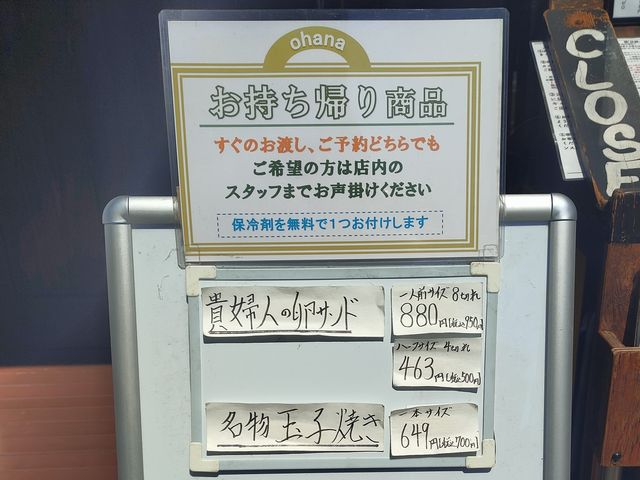 ohana
お持ち帰り商品
すぐのお渡し、ご予約どちらでも
ご希望の方は店内の
スタッフまでお声掛けください
保冷剤を無料で1つお付けします
貴婦人の卵サンド
一人前サイズ 8切れ
880円(税込950円)
ハーフサイズ 4切れ
463円(税込500円)
名物玉子焼き
一本サイズ
649円(税込700円)
CLOSE